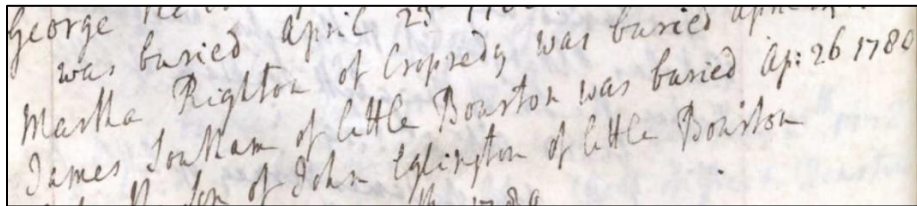 George
was buried April 23
Martha Righton of Cropredy was buried
James Southam of little Bourton was buried Ap: 26 1780
Son of John Eglington of little Bourton